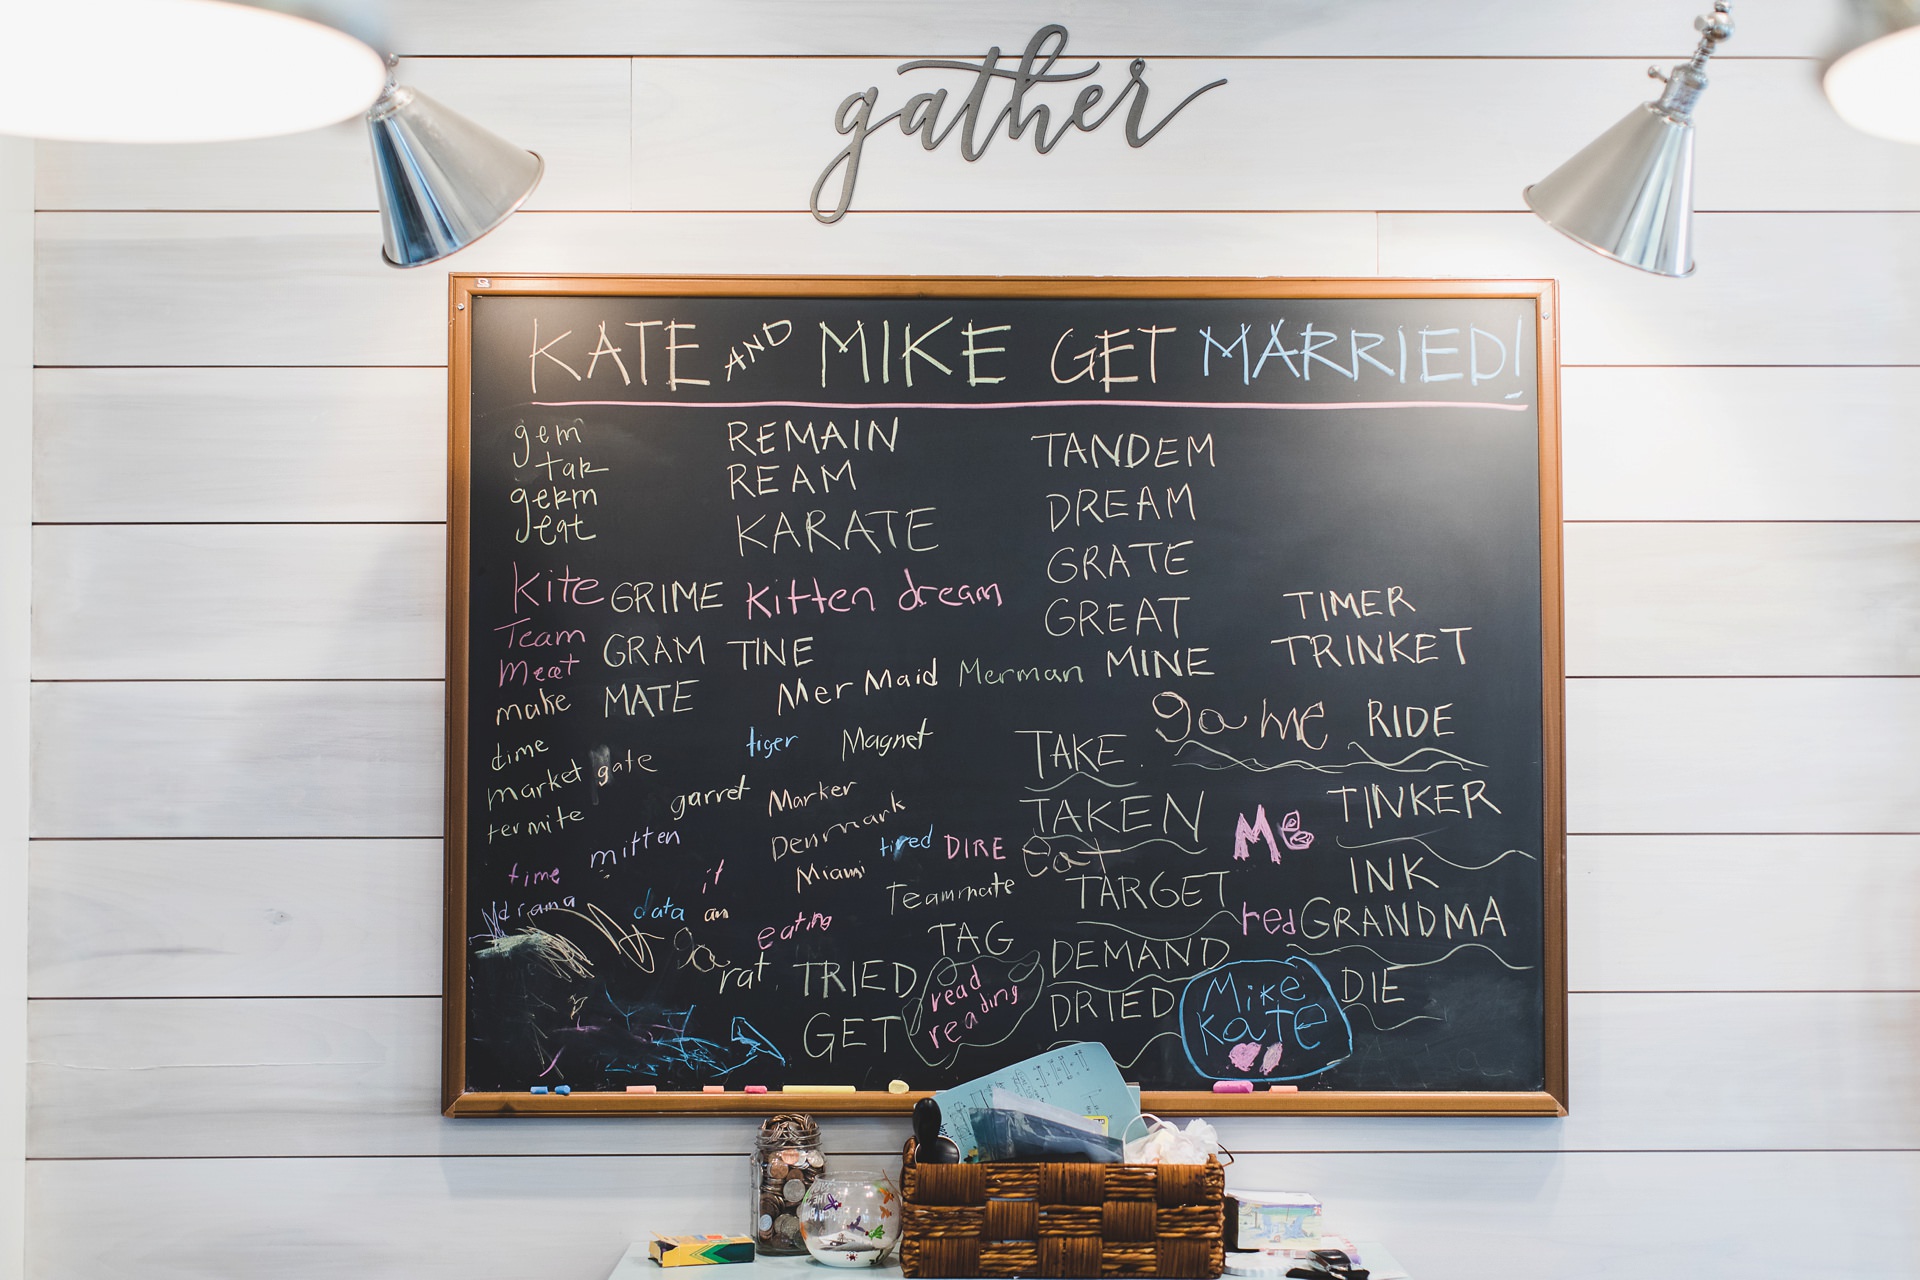 gather
KATE AND MIKE GET MARRIED!
gem
tar
germ
eat
REMAIN
REAM
KARATE
TANDEM
DREAM
GRATE
GREAT
kite GRIME kitten dream
TIMER
TRINKET
Team GRAM TINE
Meat
MerMaid Merman MINE
make MATE
game RIDE
dime
tiger Magnet
TAKE
market gate
garret Marker
TAKEN
Me
TINKER
termite
mitten
Denmark
tired DIRE
eat
time
it
Miami
Teammate
TARGET
INK
drama
data an
eating
red GRANDMA
TAG
DEMAND
ga
rat TRIED
read
reading
DRIED
Mike
Kate
DIE
GET